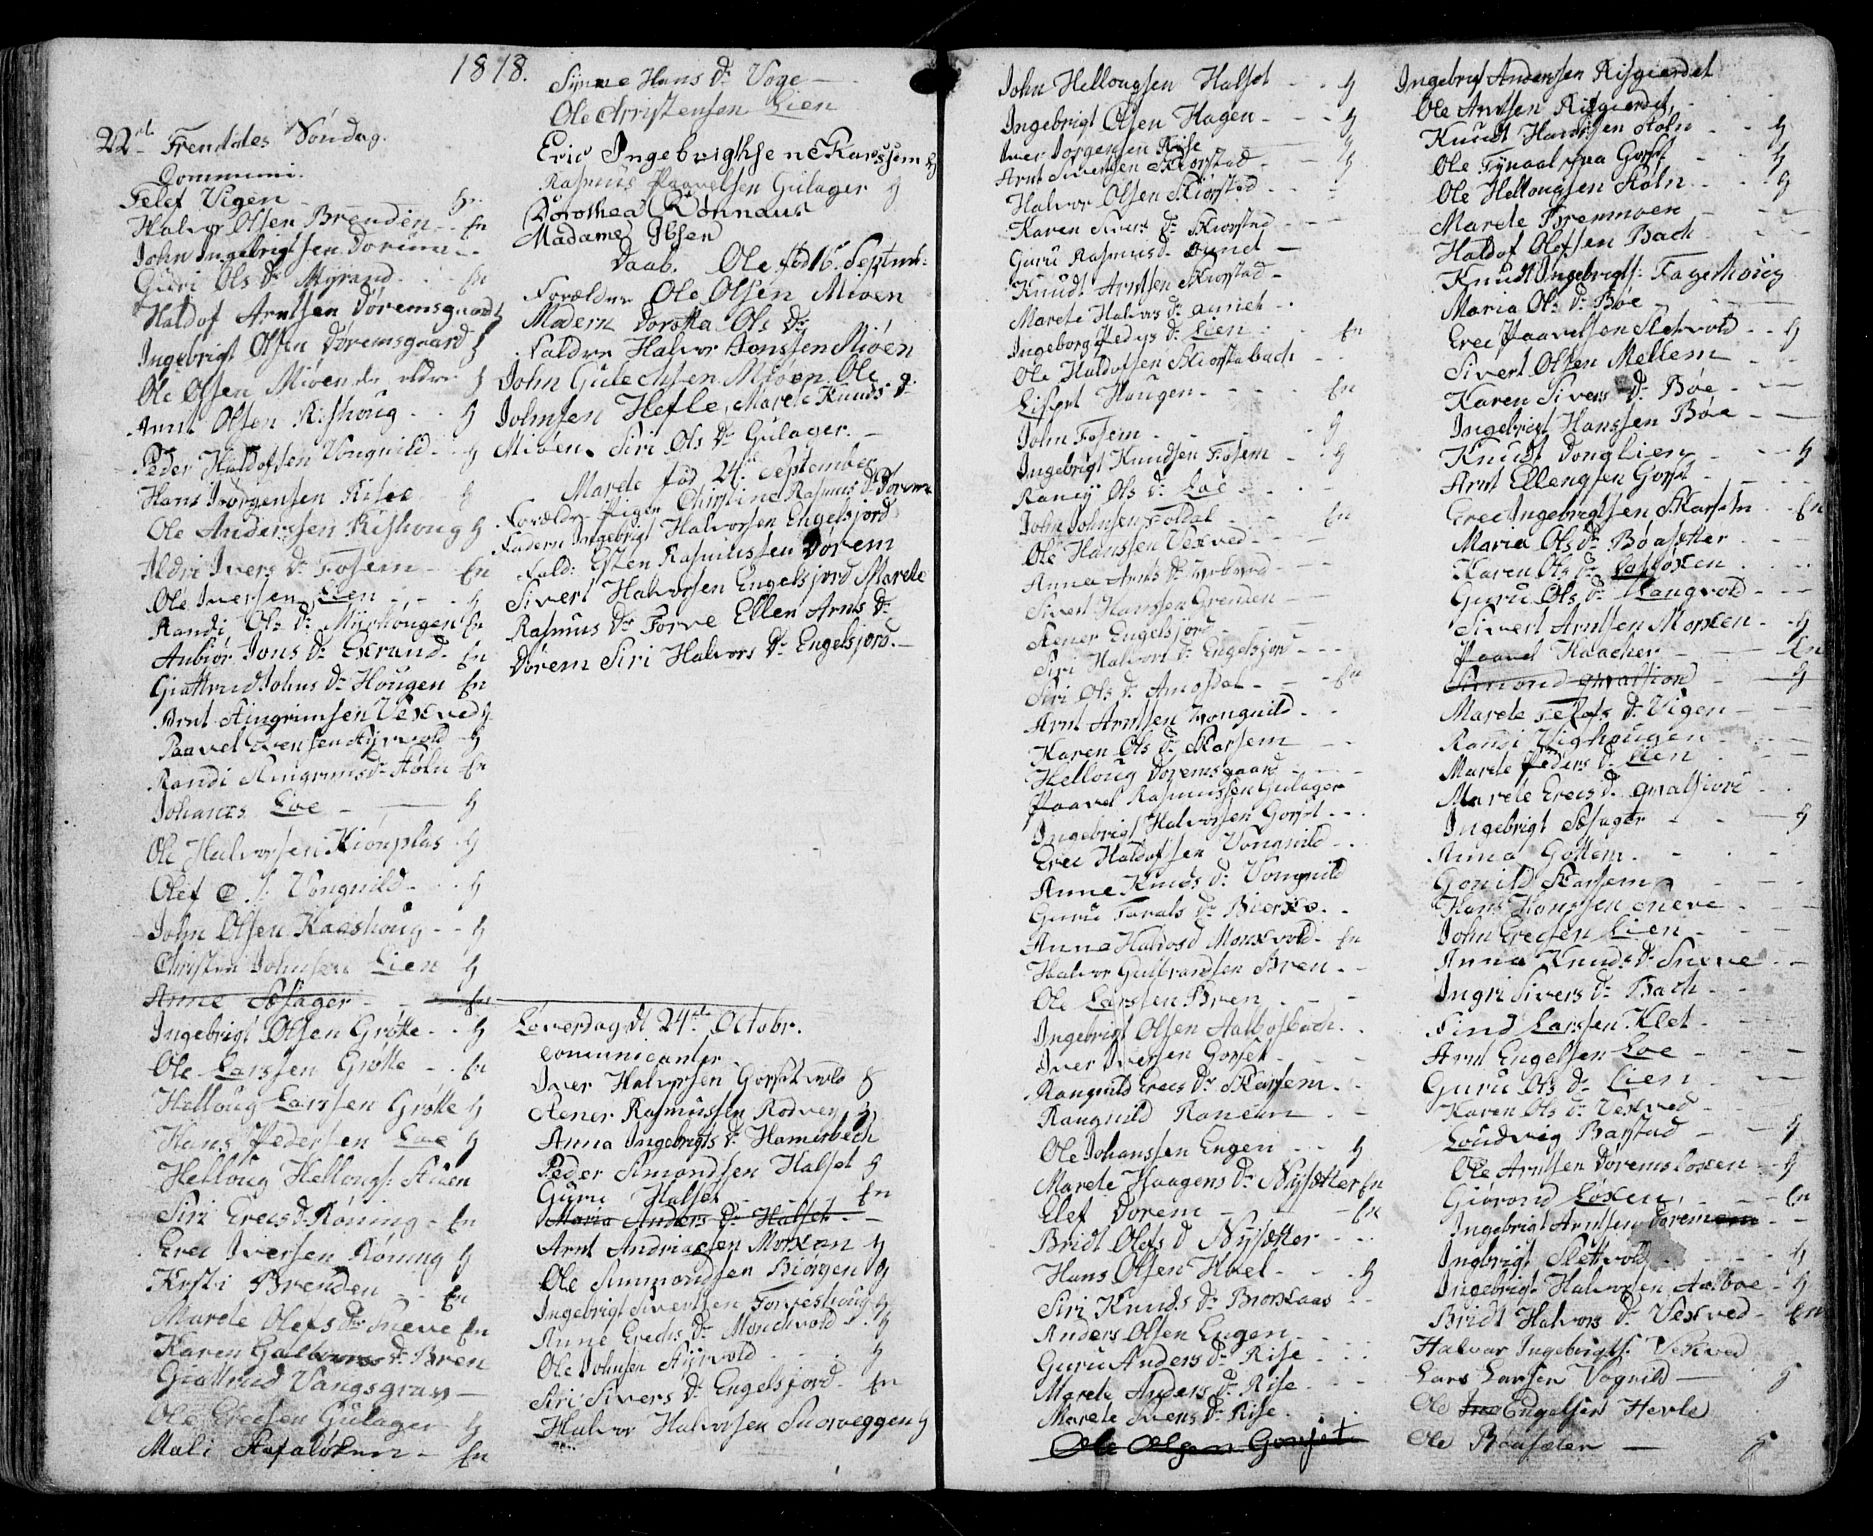 1818.
22de Trenitates Söndag.
Communi.
Telef Vigen - g.
Halvor Olsen Brenden - En
John Ingebrigtsen Dorem - -
Guri Ols Dr Myrand - En
Haldof Arntsen Doremsgaard g
Ingebrigt Olsen Doremsgaard g
Ole Olsen Mioen den eldre g
Arnt Olsen Rishoug - g
Peder Haldofsen Vongnild - g
Hans Jørgensen Rise g
Ole Andersen Rishoug g
Ildri Ivers Dr Fosem - En
Ole Iversen Lien - g
Randi Ols Dr Myrhougen En
Anbiør Jons Dr Exrand En
Giattrud Johns Dr Hougen En
Arnt Stingrimsen Vexved g
Paavel Svensen Hyrvold g
Randi Stingrimsdr Stöln En
Johanes Loe - g
Ole Halvorsen Kionplas g
Olef Vongnild - g
John Olsen Kaashoug - g
Christen Johnsen Lien g
Anne Sæsager - En
Ingebrigt Olsen Grøtte - g
Ole Larssen Grøtte - En
Helloug Larssen Grøtte g
Hans Pedersen Loe g
Helloug Hellougs: Stuen
Siri Erecs Dr Röning - En
Erec Iversen Röning g
Kristi Brenden - En
Marete Olefs Dr Sneve En
Karen Galbrans Dr Bren
Giattrud Vangsgrav -
Ole Erecsen Gulager g
Mali Stafaløken - En
Synne Hans Dr Voge -
Ole Christensen Lien
Eric Ingebrigtsen Skarssem g
Rasmus Paavelsen Gulager g
Dorothea Rönnaus
Madame Ibsen
Daab. Ole fød 16. Septmr.
Forældre Ole Olsen Mioen
Modern Dorotta Ols Dr
Faddere Halvor Jonssen Mioen
John Gulechsen Mioen, Ole
Johnsen Hefle, Marete Knuds Dr
Mioen. Siri Ols Dr Gulager. -
Marete fød 24. September
Forældre Piger Christine Rasmus Dr Dorem
Fadern Ingebrigt Halvorsen Engelsjord
Fald: Esten Rasmussen Dorem
Sivert Halvorsen Engelsjord Marete
Rasmus Dr Forve Ellen Arnts Dr
Dorem Siri Halvors Dr Engelsjord. -
Løverdag d 24de Octobr.
Comunicanter
Iver Halvorsen Gorsetvold g
Stener Rasmussen Rodvey g
Anna Ingebrigts Dr Hamerbech
Peder Simondsen Halset g
Guru Halset - - En
Maria Anders Dr Halset -
Arnt Andriaesen Morxen g
Ole Simmondsen Biorgen g
Ingebrigt Sivertsen Forveshoug g
Anne Erecs Dr Monchvold - g
Ole Johnsen Hyrvold - - g
Siri Sivers Dr Engelsjord - En
Halvor Halvorsen Snorveggen g
John Hellougsen Halset - - g
Ingebrigt Olsen Hagen - - g
Iver Jorgensen Rise g
Arnt Sivertsen Skiorstad - g
Halvor Olsen Skiorstad - -
Karen Sivers Dr Skiorstad - -
Guru Rasmusdr Aunet -
Knudt Arntsen Skiorstad -
Marete Halvors Dr Aunet - -
Ingeborg Peders Dr Lien - En
Ole Haldofsen Skiorstabach - -
Lisbet Haugen - - En
John Fosem - - g
Ingebrigt Knudsen Fosem - g
Raney Ols Dr Loe -
John Johnsen Foldal - En
Ole Hanssen Vexved - -
Anna Arnts Dr Vexved - -
Sivert Hanssen Grenden - -
Stener Engelsjord - -
Siri Halvors Dr Engelsjord - -
Siri Ols Dr Amosdal - - En
Arnt Arntsen Vongnild - -
Karen Ols Dr Skarsem - -
Helloug Doremsgaard - -
Paavel Rasmussen Gulager
Ingebrigt Halvorsen Gorset - -
Erec Haldofsen Vongnild - -
Anne Knuds Dr Vongnild
Guru Tarals Dr Bierke. -
Anna Haldosd Monxvold - En
Halvor Gulbrandsen Bren - -
Ole Larssen Bren - -
Ingebrigt Olsen Aalbosbach - -
Iver Iversen Gorset - -
Rangnild Erecs Dr Skarsem - -
Rangnild Ranem - -
Ole Johanssen Engen - - g
Marete Haagens Dr Nysetter En
Elef Dorem - - En
Bridt Olefs D Nysetter - -
Hans Olsen Hoel - - g
Siri Knuds Dr Broxlaas - -
Anders Olsen Engen - -
Guru Anders Dr Rise - -
Marete Anders Dr Rise - -
Marete Svens Dr Rise -
Ole Olsen Gorset
Ingebrigt Andersen Risgiærdet
Ole Arntsen Risgiærdet, - -
Knudt Hanssen Stöln - - g
Ole Gorset - g
Ole Hellougsen Stöln - - g
Marete Bremmoen - -
Haldof Olefsen Bach - -
Knudt Ingebrigts: Fagerhoug
Maria Ols Dr Böe - -
Erec Paavelsen Sletvold - g
Sivert Olsen Mellem - -
Karen Sivers Dr Böe - -
Ingebrigt Hanssen Böe - -
Knudt Donglien - - g
Arnt Ellengsen Gorset - -
Erec Ingebrigtsen Skarsem - En
Maria Ols Dr Böasetter - -
Karen Ols Dr Løken - -
Guru Ols Dr Langvold - -
Sivert Arntsen Morxen - g
Paavel Haacker - - En
Simond Qvalsiord - g
Marete Telofs Dr Vigen - -
Randi Vighougen - -
Marete Peders Dr Lien - -
Marete Erecs Dr Qvalsiord - -
Ingebrigt Sæsager - - g
Anna Gottem - -
Gonild Skarsem - -
Hans Hanssen Sneve - -
John Erecsen Lien - -
Anna Knuds Dr Sneve - -
Ingri Sivers Dr Bach - -
Find Larssen Klet - -
Arnt Engelsen Loe - -
Guru Ols Dr Lien - -
Karen Ols Dr Vexved - -
Loudvig Barstad - - g
Ole Arntsen Doremsloxen - g
Giørond Løxen - - En
Ingebrigt Arntsen Dorem - -
Ingebrigt Slettvold - - g
Ingebrigt Halvorsen Aalboe - g
Bridt Halvors Dr Vexved - En
Halvor Ingebrigts: Vexved
Lars Larsen Vognild - g
Ole Engelsen Hevle
Ole Böasæter - g